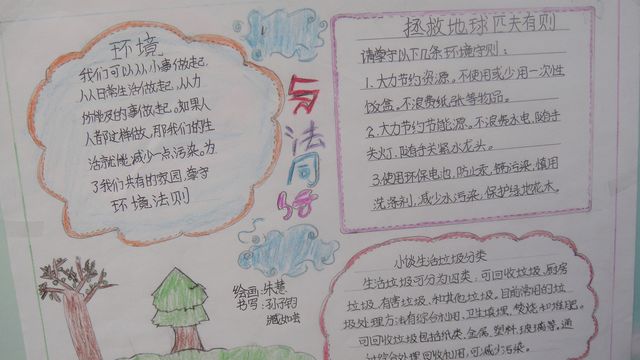 环境
我们可以从小事做起,
从日常生活做起,从力
所能及的事做起。如果人
人都这样做,那我们的生
活就能减少一点污染。为
了我们共有的家园,遵守
环境法则
与法同行
拯救地球匹夫有则
请遵守以下几条环境守则:
1.大力节约资源。不使用或少用一次性
饭盒,不浪费纸张等物品。
2.大力节约节能源。不浪费水电,随手
关灯,随手关紧水龙头。
3.使用环保电池,防止汞、镉污染,慎用
洗涤剂,减少水污染,保护绿地花木。
绘画:朱慧
书写:
小谈生活垃圾分类
生活垃圾可分为四类,可回收垃圾,厨房
垃圾,有害垃圾,和其他垃圾。目前常用的垃
圾处理方法有综合利用,卫生填埋,焚烧和堆肥。
可回收垃圾包括纸类,金属,塑料,玻璃等,通
过综合处理回收利用,可减少污染。